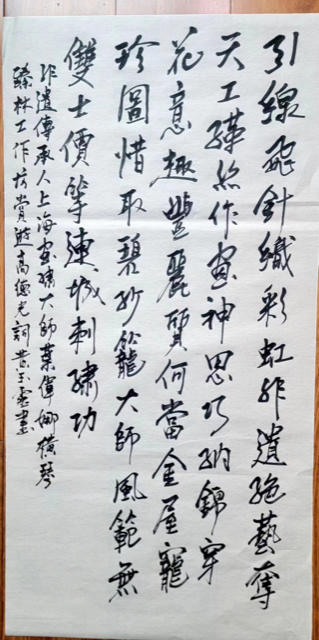 引線飛針織彩虹非遺絶藝奪
天工擇絲作畫神思巧納錦穿
花意趣豐麗質何當金屋寵
珍圖惜取碧紗籠大師風範無
雙士價等連城刺繡功
非遺傳承人上海畫繡大師葉偉娜橫琴
臻林工作坊賞遊高德光詞黃玉靈書